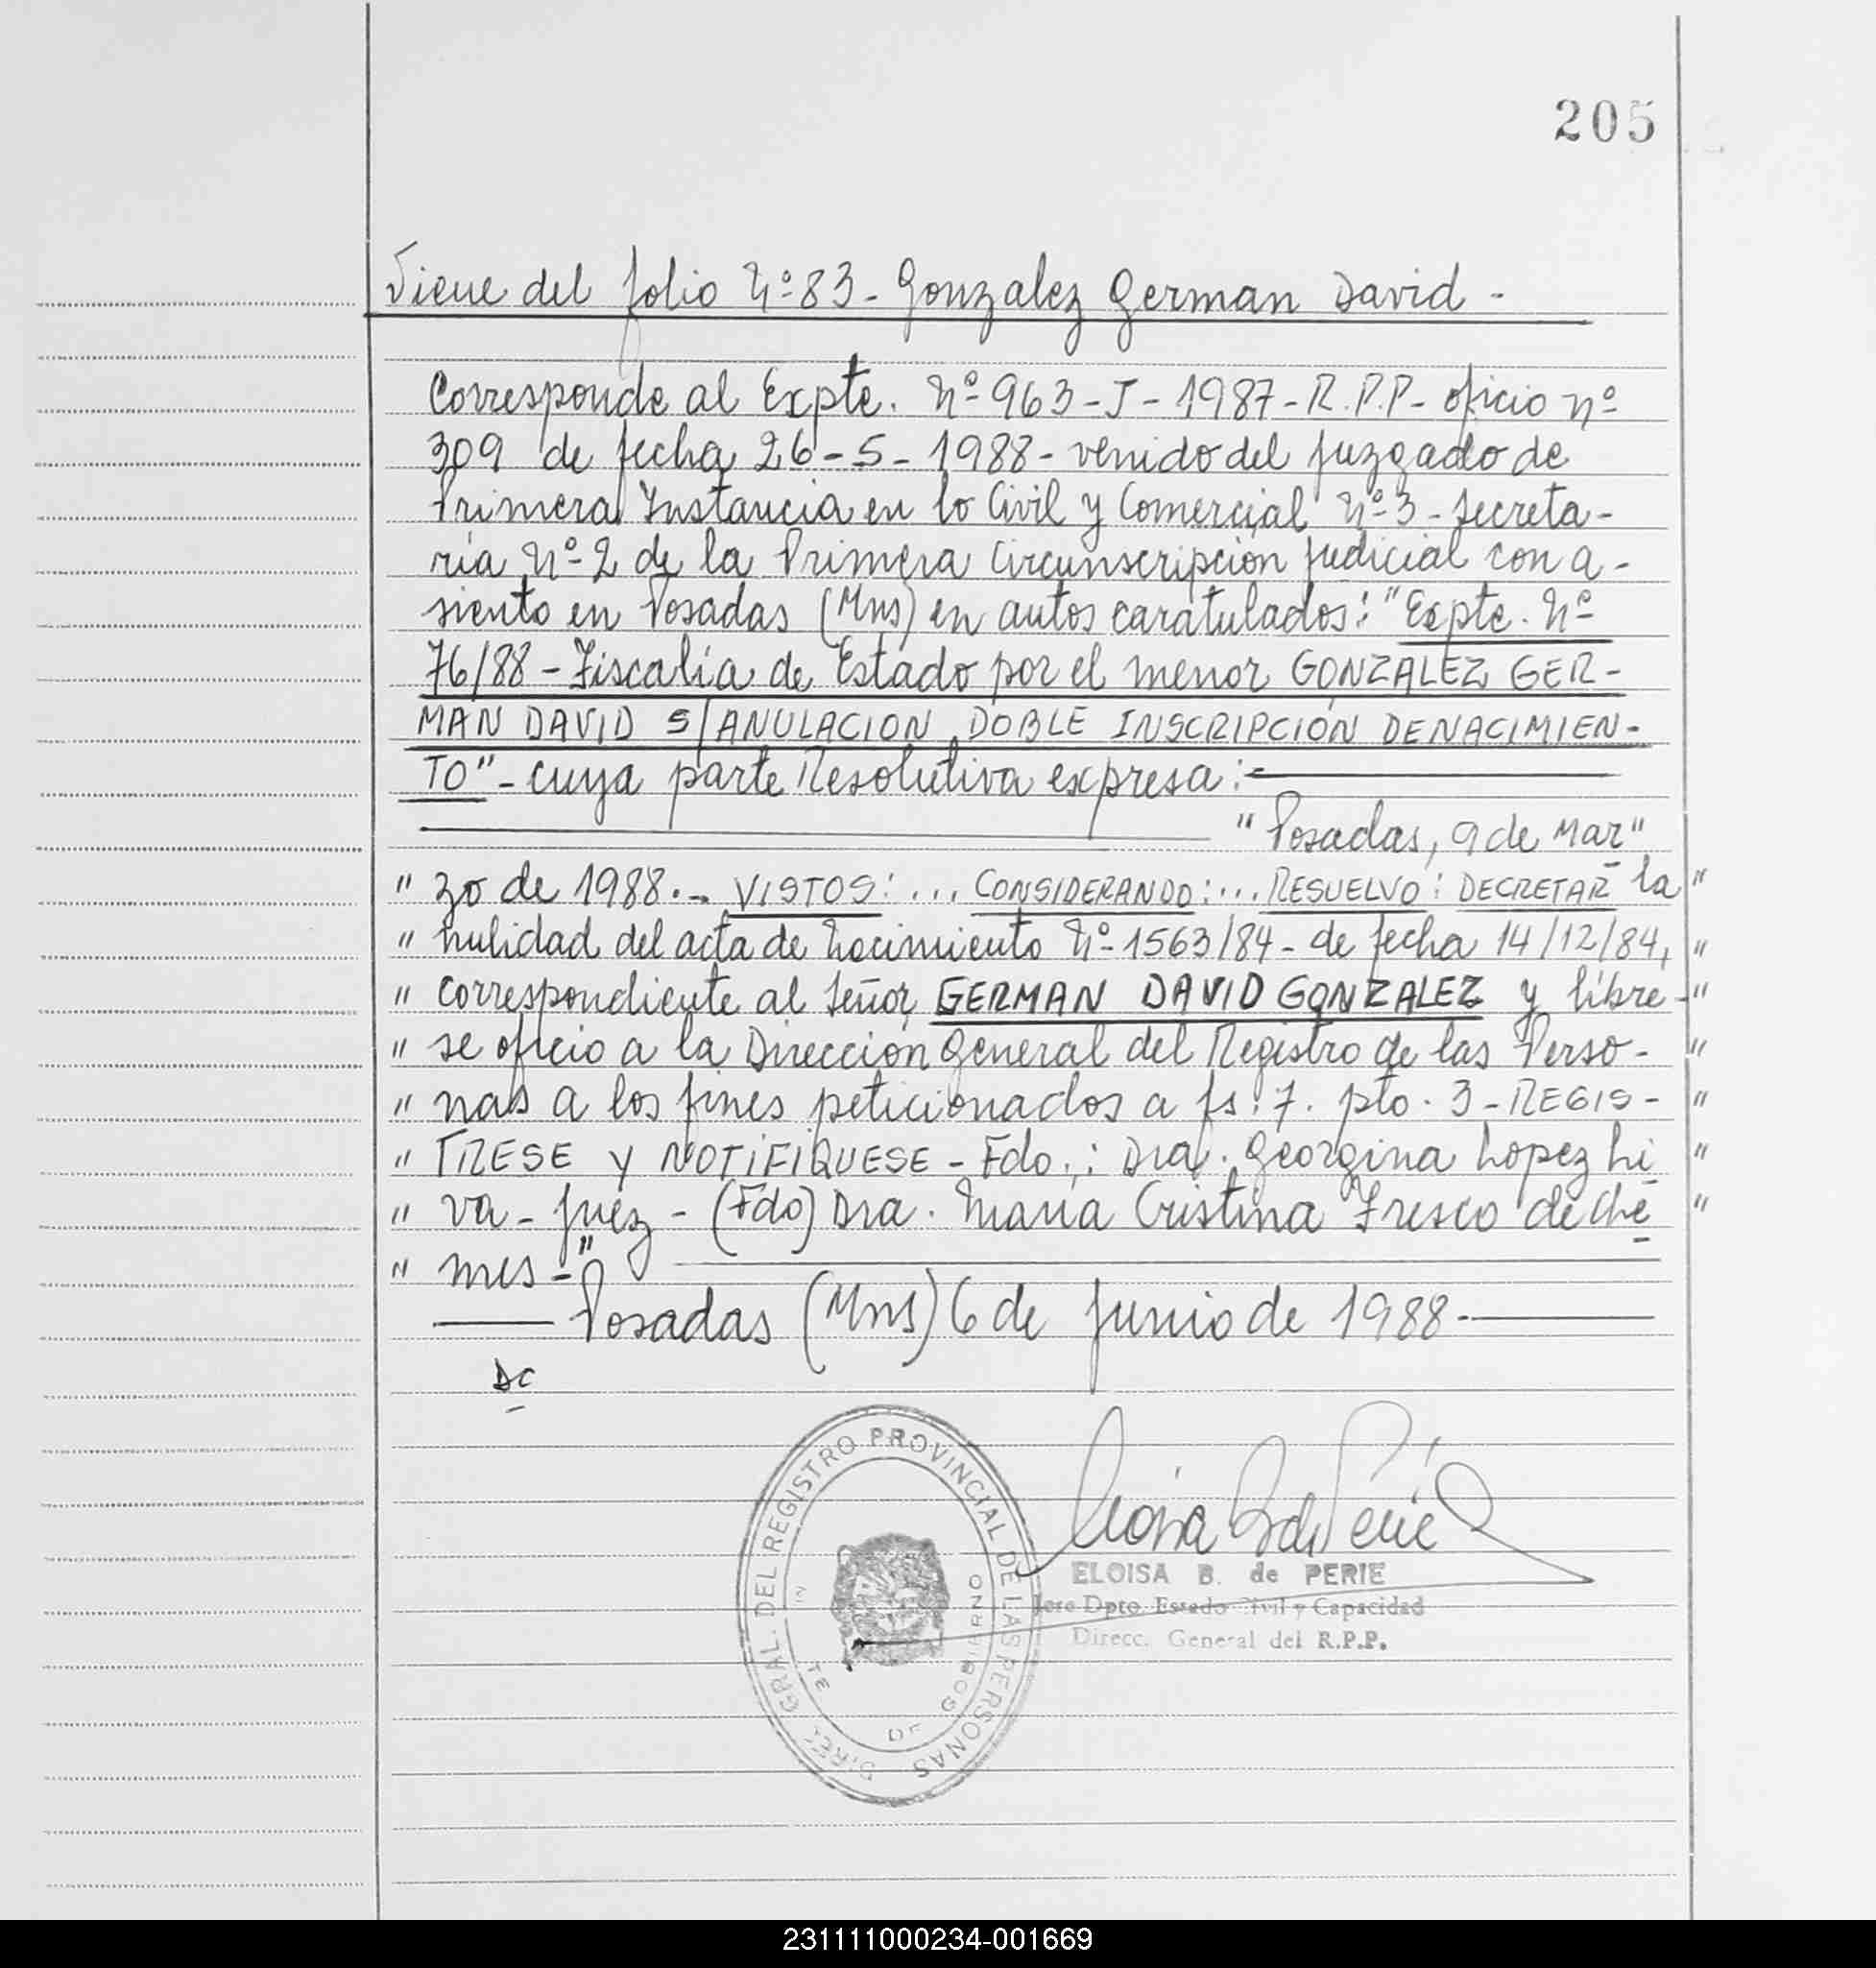 205
Viene del folio Nº 83 - Gonzalez German David -
Corresponde al Expte. Nº 963 - J - 1987 - R.P.P - oficio nº
309 de fecha 26 - 5 - 1988 - venido del Juzgado de
Primera Instancia en lo Civil y Comercial Nº 3 - Secreta-
ria Nº 2 de la Primera Circunscripción Judicial con a-
siento en Posadas (Mns) en autos caratulados: "Expte. Nº
76/88 - Fiscalía de Estado por el menor GONZALEZ GER-
MAN DAVID S/ANULACION DOBLE INSCRIPCIÓN DE NACIMIEN-
TO" - cuya parte Resolutiva expresa:-
"Posadas, 9 de Mar"
" zo de 1988.- VISTOS: ... CONSIDERANDO: ... RESUELVO: DECRETAR la "
" nulidad del acta de Nacimiento Nº 1563/84 - de fecha 14/12/84, "
" correspondiente al Señor GERMAN DAVID GONZALEZ y líbre- "
" se oficio a la Dirección General del Registro de las Perso- "
" nas a los fines peticionados a fs: 7. pto. 3 - REGIS- "
" TRESE Y NOTIFIQUESE - Fdo.: Dra. Georgina Lopez Li "
" va - Juez - (Fdo) Dra. María Cristina Fresco de Che "
" mes - "
Posadas (Mns) 6 de Junio de 1988.-
DC
DIREC. GRAL. DEL REGISTRO PROVINCIAL DE LAS PERSONAS
DE GOBIERNO
ELOISA B. de PERIE
Jefe Dpto. Estado Civil y Capacidad
Direcc. General del R.P.P.
231111000234-001669